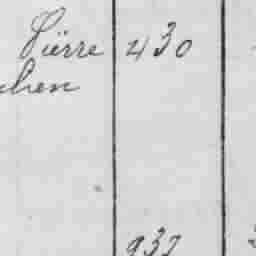 Pierre 430
chen
932